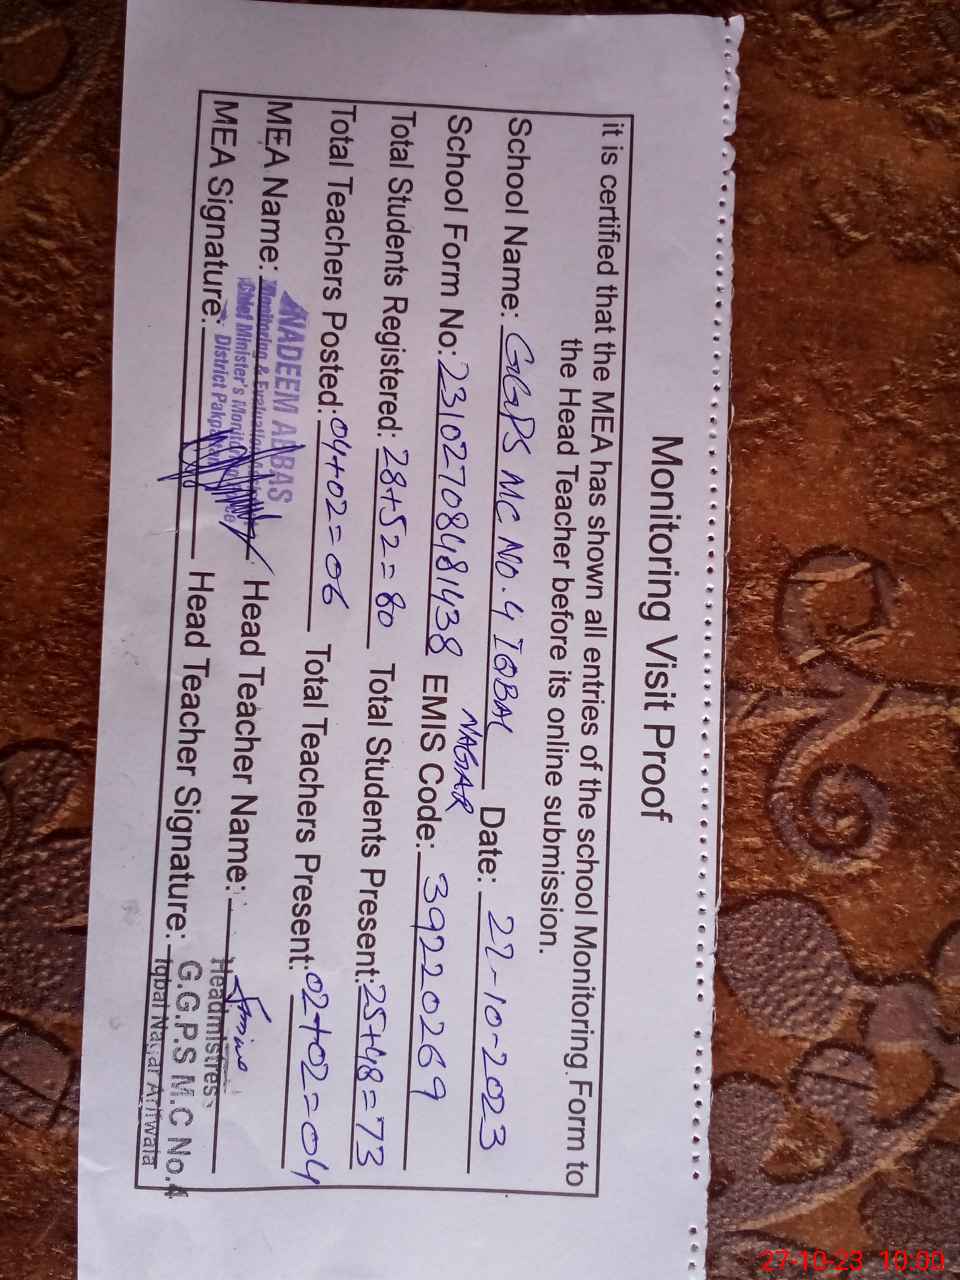 Monitoring Visit Proof
it is certified that the MEA has shown all entries of the school Monitoring Form to
the Head Teacher before its online submission.
School Name: GGPS MC NO.4 IQBAL NAGAR Date: 27-10-2023
School Form No: 23102708481438 EMIS Code: 39220269
Total Students Registered: 28+52=80 Total Students Present: 25+48=73
Total Teachers Posted: 04+02=06 Total Teachers Present: 02+02=04
MEA Name: NADEEM ABBAS Head Teacher Name:
Monitoring & Evaluation
Chief Minister's Monitoring
District Pakpattan
Headmistress
MEA Signature: Head Teacher Signature: G.G.P.S M.C No.4
Iqbal Nagar Arifwala
27-10-23 10:00